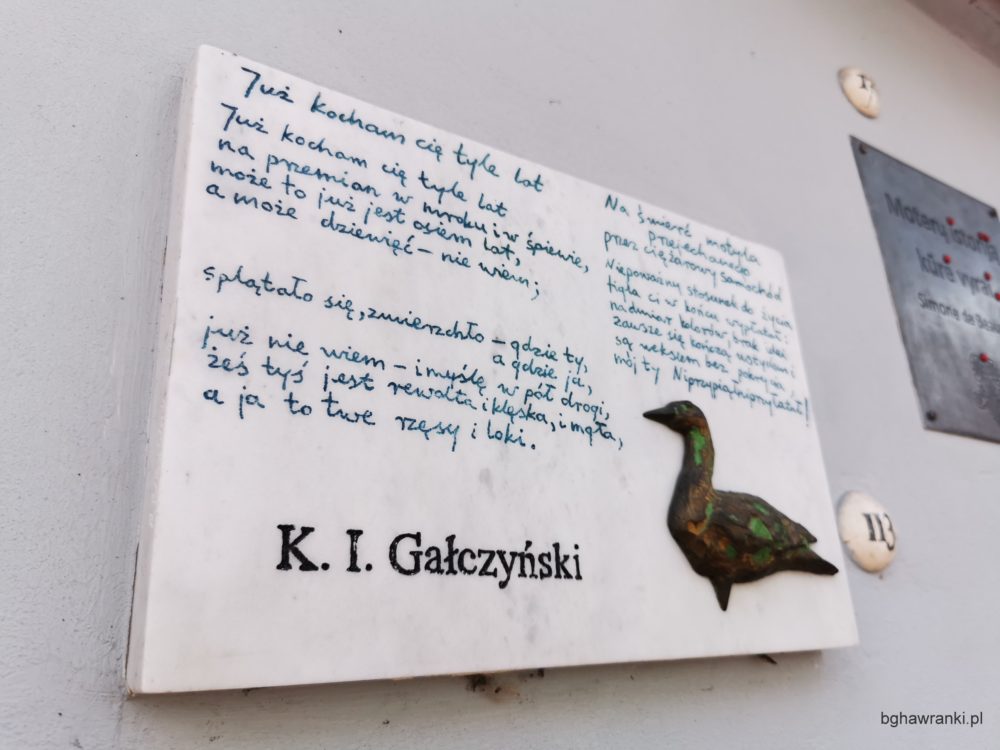 Już kocham cię tyle lat
Już kocham cię tyle lat
na przemian w mroku i w śpiewie,
może to już jest osiem lat,
a może dziewięć – nie wiem;
splątało się, zmierzchło – gdzie ty,
a gdzie ja,
już nie wiem – i myślę w pół drogi,
żeś tyś jest rewolta i klęska, i mgła,
a ja to twe rzęsy i loki.
Na śmierć motyla
przejechanego
przez ciężarowy samochód
Niepoważny stosunek do życia
figla ci w końcu wypłatał:
nadmiar kolorów, brak idei
zawsze się kończą wstydem i
są wekslem bez pokrycia,
mój ty
K. I. Gałczyński
113
Simone de
bghawranki.pl